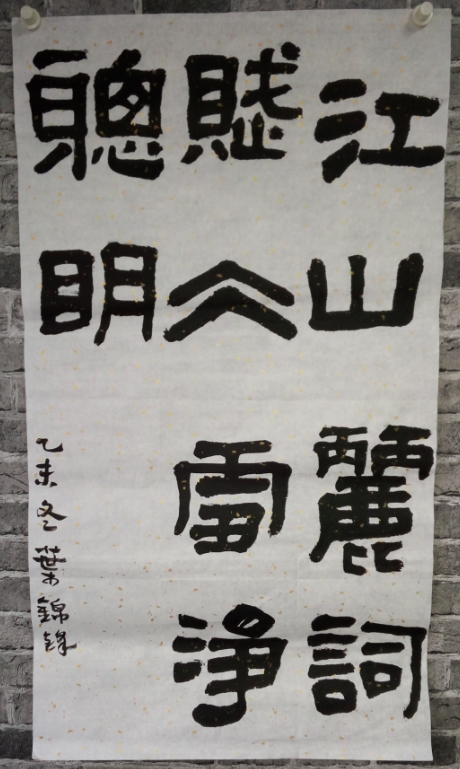 江山麗詞
賦仌雪淨
聰明
乙未冬葉錦鋒